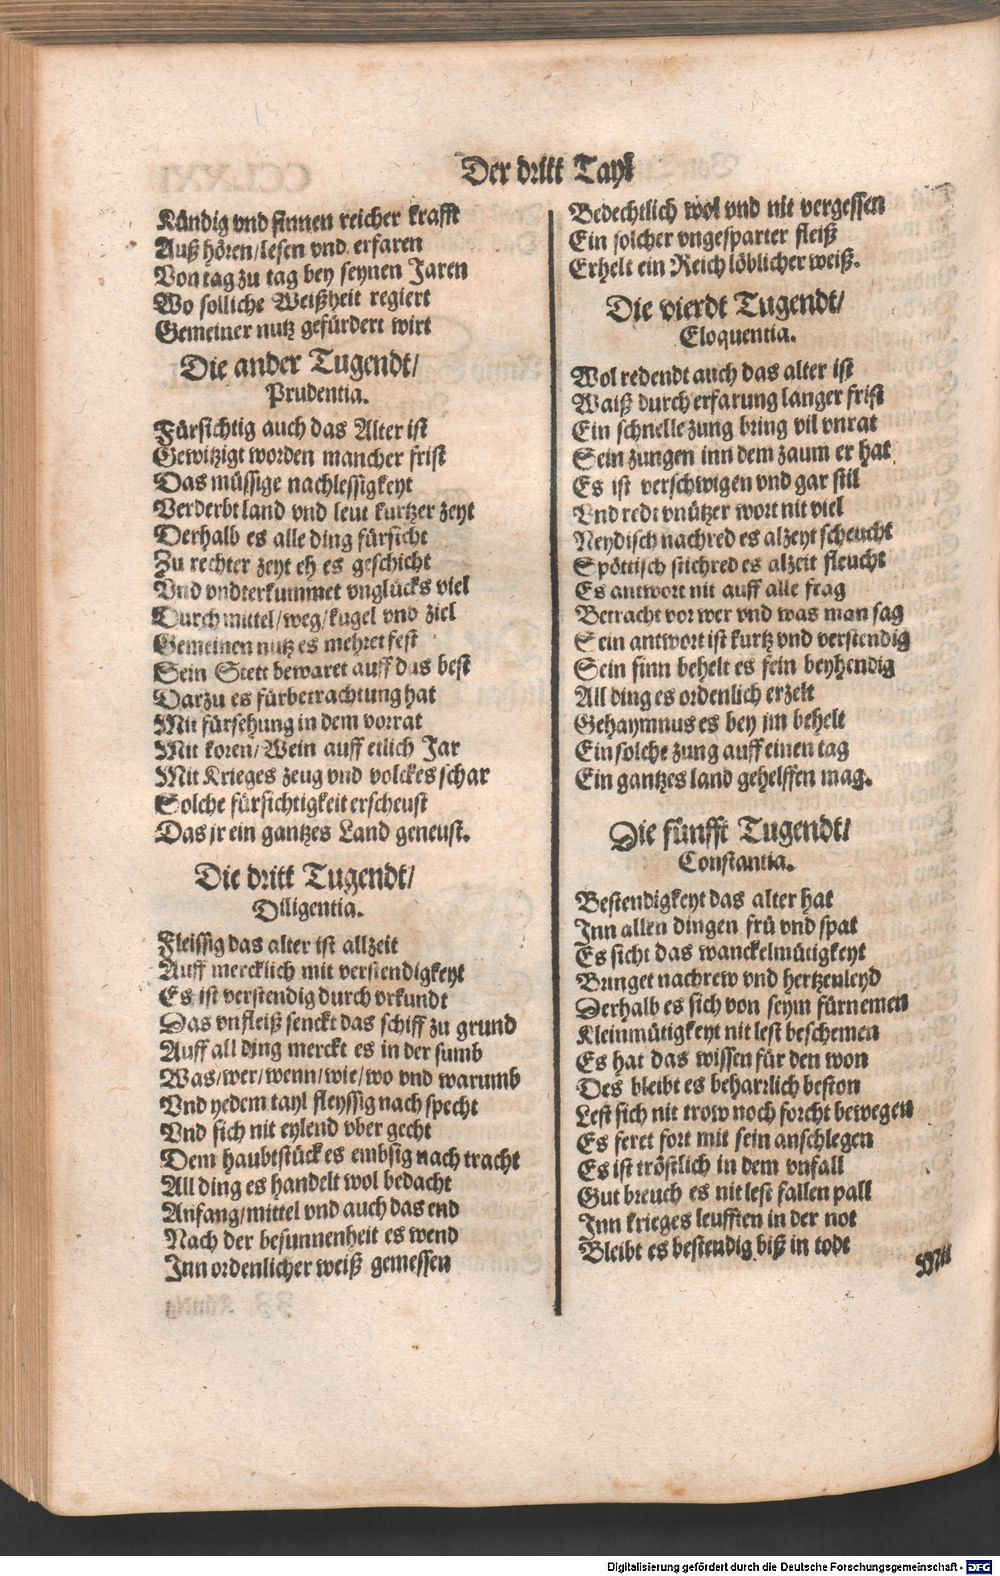 Der dritt Tayl
Kündig vnd sinnen reicher krafft
Auß hören/lesen vnd erfaren
Von tag zu tag bey seynen Jaren
Wo solliche Weißheit regiert
Gemeiner nutz gefürdert wirt
Die ander Tugendt/
Prudentia.
Fürsichtig auch das Alter ist
Gewitzigt worden mancher frist
Das müssige nachlessigkeyt
Verderbt land vnd leut kurtzer zeyt
Derhalb es alle ding fürsicht
Zu rechter zeyt eh es geschicht
Vnd vndterkummet vnglücks viel
Durch mittel/weg/kugel vnd ziel
Gemeinen nutz es mehret fest
Sein Stett bewaret auff das best
Darzu es fürbetrachtung hat
Mit fürsehung in dem vorrat
Mit koren/Wein auff etlich Jar
Mit Krieges zeug vnd volckes schar
Solche fürsichtigkeit erscheust
Das jr ein gantzes Land geneust.
Die dritt Tugendt/
Diligentia.
Fleissig das alter ist allzeit
Auff mercklich mit verstendigkeyt
Es ist verstendig durch vrkundt
Das vnfleiß senckt das schiff zu grund
Auff all ding merckt es in der sumb
Was/wer/wenn/wie/wo vnd warumb
Vnd yedem tayl fleyssig nach specht
Vnd sich nit eylend vber gecht
Dem haubtstück es embsig nach tracht
All ding es handelt wol bedacht
Anfang/mittel vnd auch das end
Nach der besunnenheit es wend
Inn ordenlicher weiß gemessen
Bedechtlich wol vnd nit vergessen
Ein solcher vngesparter fleiß
Erhelt ein Reich löblicher weiß.
Die vierdt Tugendt/
Eloquentia.
Wol redendt auch das alter ist
Waiß durch erfarung langer frist
Ein schnelle zung bring vil vnrat
Sein zungen inn dem zaum er hat
Es ist verschwigen vnd gar stil
Vnd redt vnützer wort nit viel
Neydisch nachred es alzeyt scheucht
Spöttisch stichred es alzeit fleucht
Es antwort nit auff alle frag
Betracht vor wer vnd was man sag
Sein antwort ist kurtz vnd verstendig
Sein sinn behelt es fein beyhendig
All ding es ordenlich erzelt
Gehaymnus es bey jm behelt
Ein solche zung auff einen tag
Ein gantzes land gehelffen mag.
Die fünfft Tugendt/
Constantia.
Bestendigkeyt das alter hat
Inn allen dingen frü vnd spat
Es sicht das wanckelmütigkeyt
Bringet nachrew vnd hertzenleyd
Derhalb es sich von seym fürnemen
Kleinmütigkeyt nit lest beschemen
Es hat das wissen für den won
Des bleibt es beharrlich beston
Lest sich nit trow noch forcht bewegen
Es feret fort mit sein anschlegen
Es ist tröstlich in dem vnfall
Gut breuch es nit lest fallen pall
Inn krieges leufften in der not
Bleibt es bestendig biß in todt
Mit
Digitalisierung gefördert durch die Deutsche Forschungsgemeinschaft - DFG